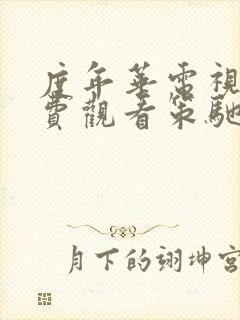 度年華電視
費觀看策馳
月下的翊坤宮